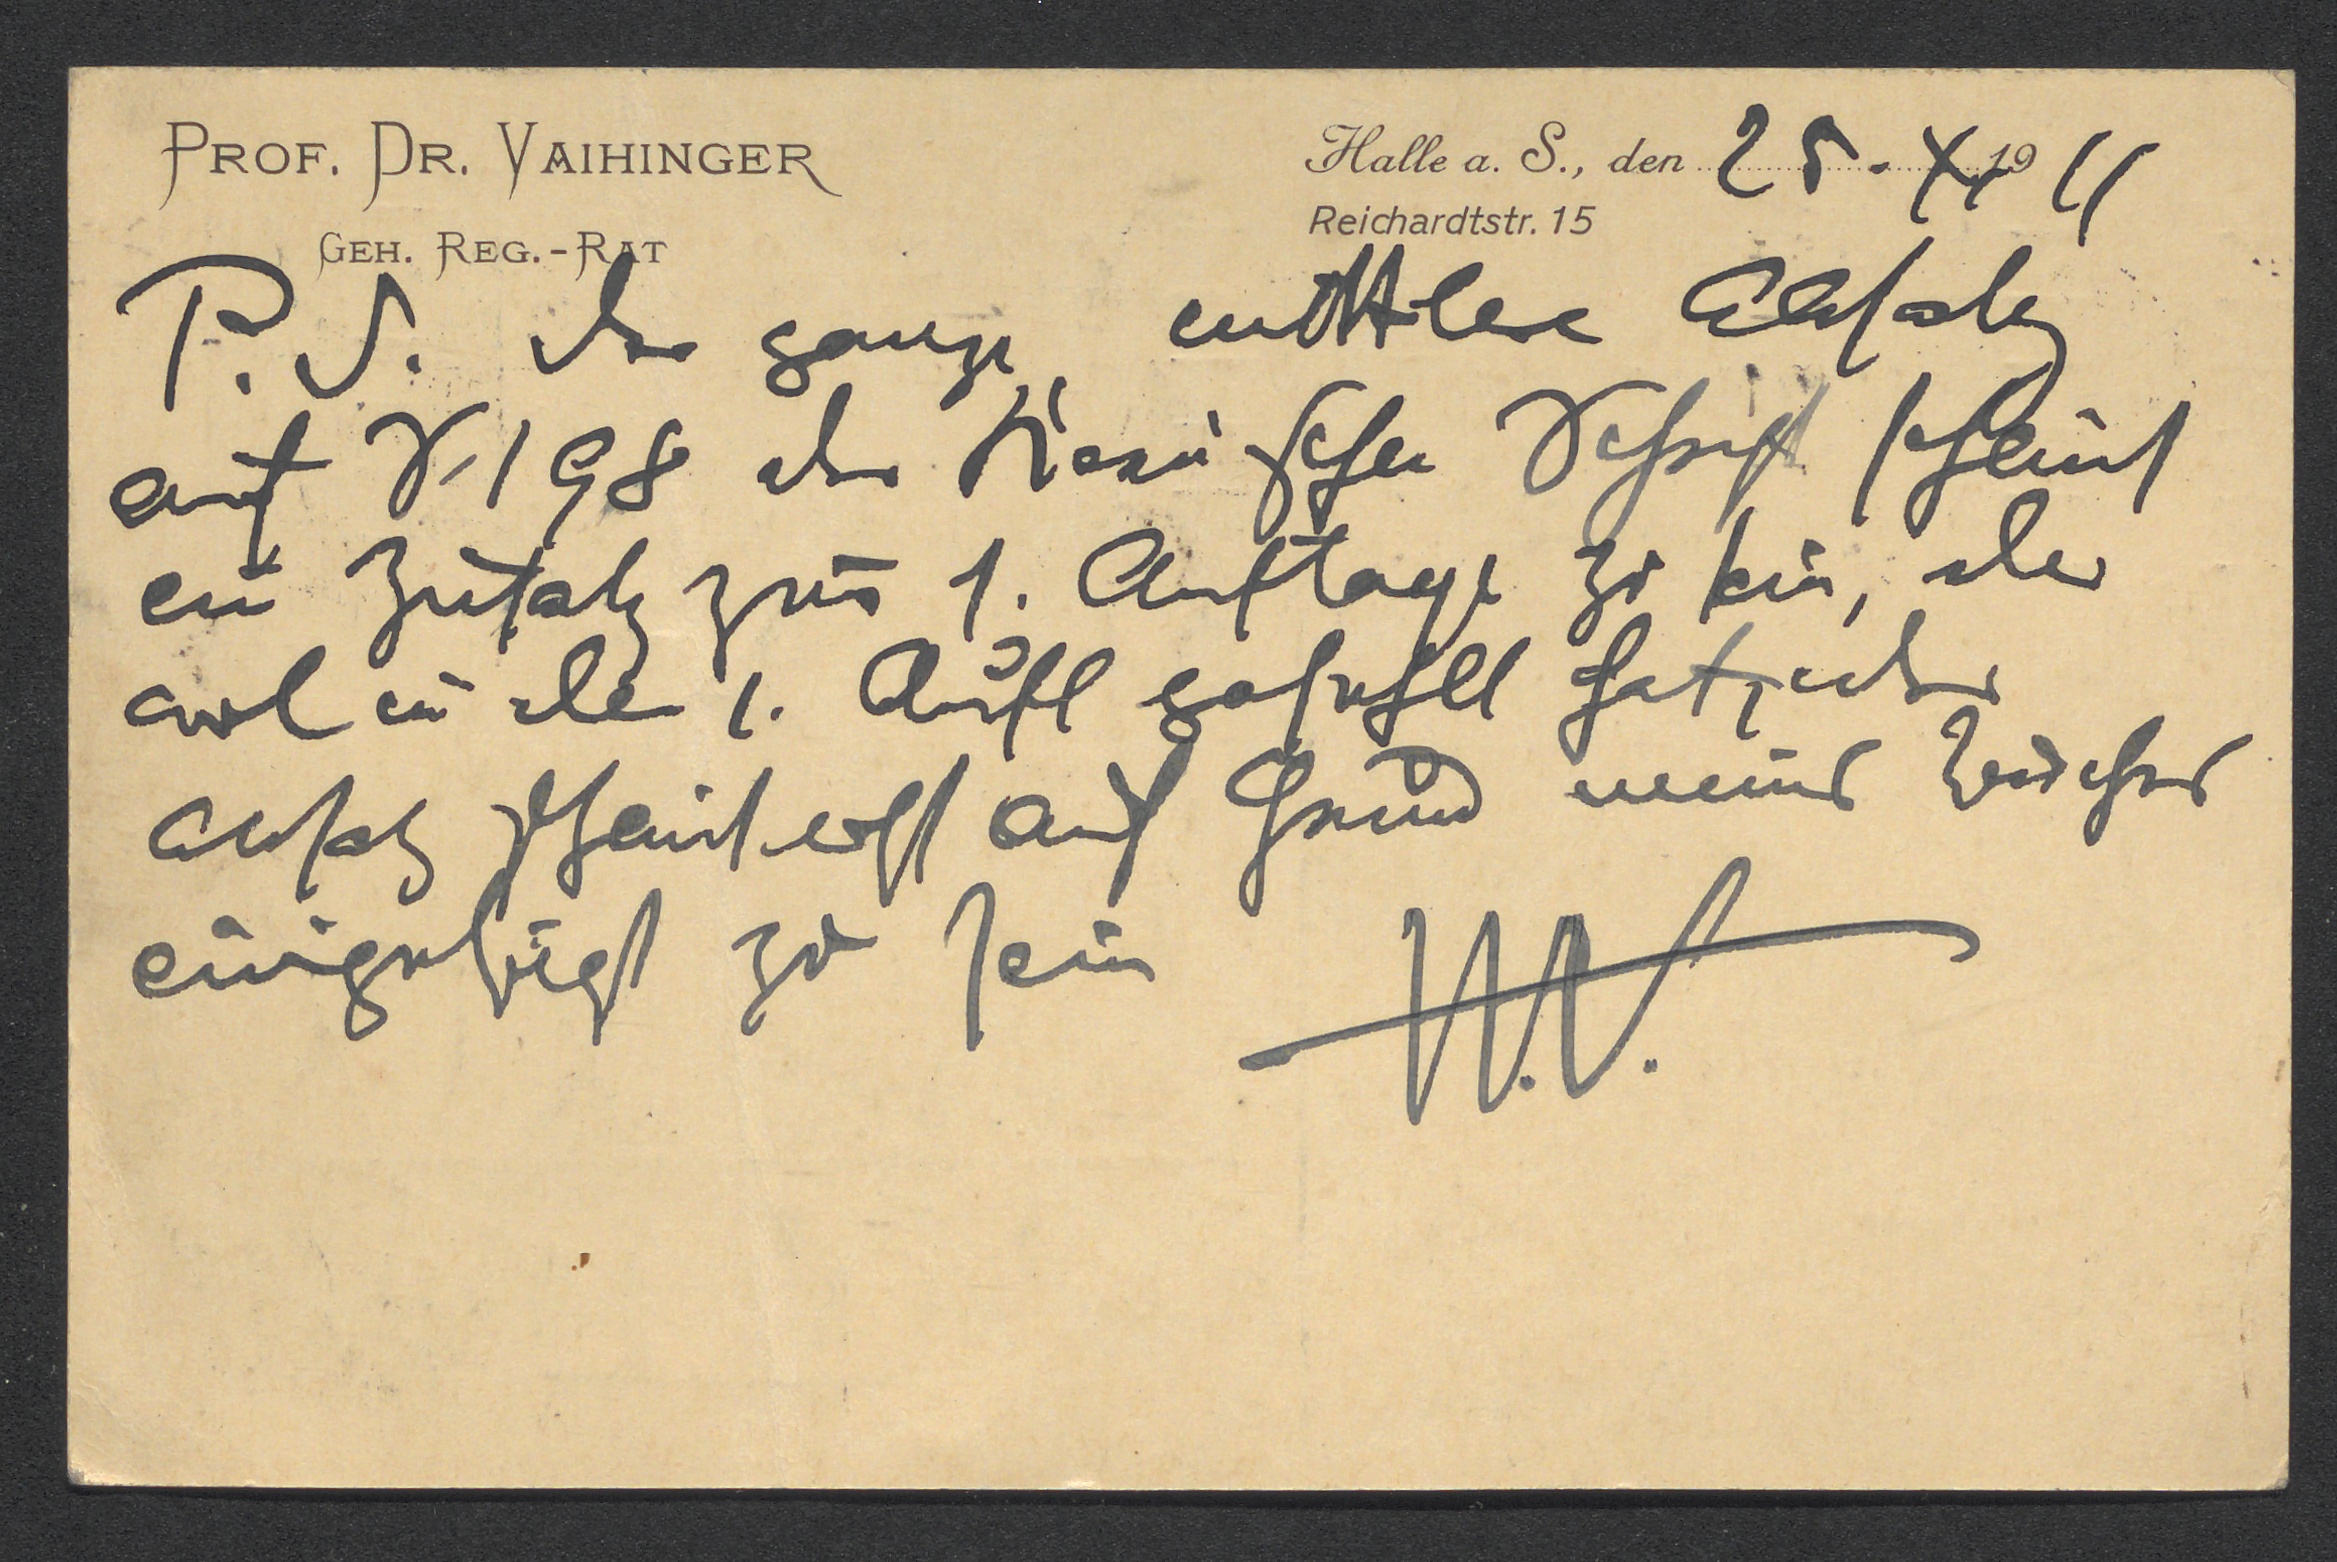 PROF. DR. VAIHINGER
GEH. REG.-RAT
Halle a. S., den 25. XI 1911
Reichardtstr. 15
P. S. der ganze mittlere Absatz
auf S. 198 der Schrift scheint
ein Zusatz zur 1. Auflage zu sein, der
wol in der 1. Aufl gefehlt hat,
Absatz scheint erst auf Grund meines
eingefügt zu sein H. V.